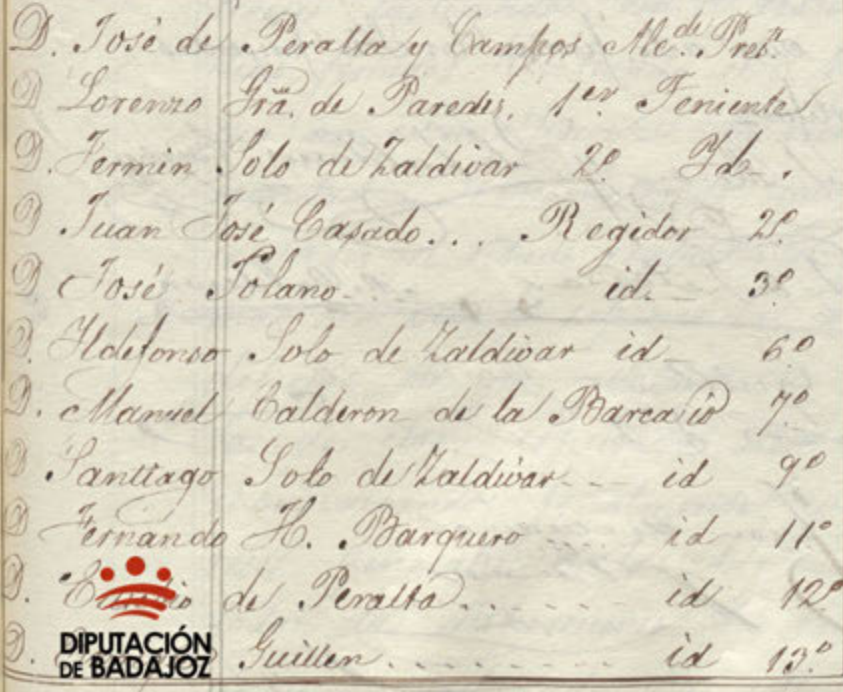 D. José de Peralta y Campos Alc.de Pres.te
D Lorenzo Gra. de Paredes, 1er Teniente
D. Fermin Solo de Zaldivar 2º Id.
D Juan José Casado... Regidor 2º
D José Solano id. 3º
D. Ildefonso Solo de Zaldivar id 6º
D. Manuel Calderon de la Barca id 7º
D Santiago Solo de Zaldivar id 9º
D Fernando H. Barquero id 11º
D. de Peralta id 12º
D. Guillen id 13º
DIPUTACIÓN
DE BADAJOZ